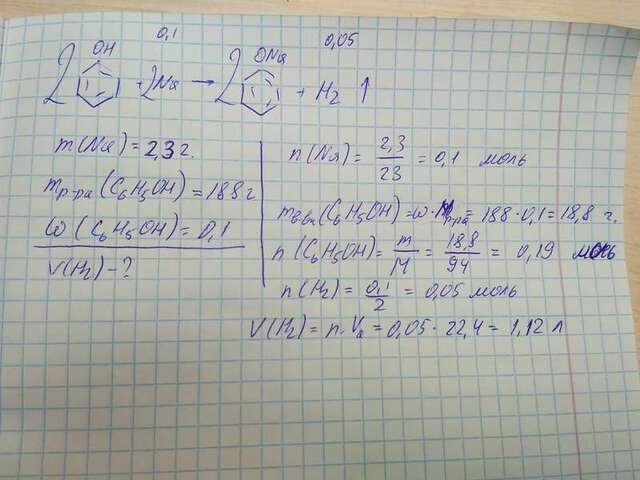 0,1 0,05
2 OH + 2Na → 2 ONa + H₂ ↑
m(Na) = 2,3 г.
mр-ра(C₆H₅OH) = 188 г
ω(C₆H₅OH) = 0,1
V(H₂) - ?
n(Na) = 2,3/23 = 0,1 моль
mв-ва(C₆H₅OH) = ω · mр-ра = 188 · 0,1 = 18,8 г.
n(C₆H₅OH) = m/M = 18,8/94 = 0,19 моль
n(H₂) = 0,1/2 = 0,05 моль
V(H₂) = n · Va = 0,05 · 22,4 = 1,12 л